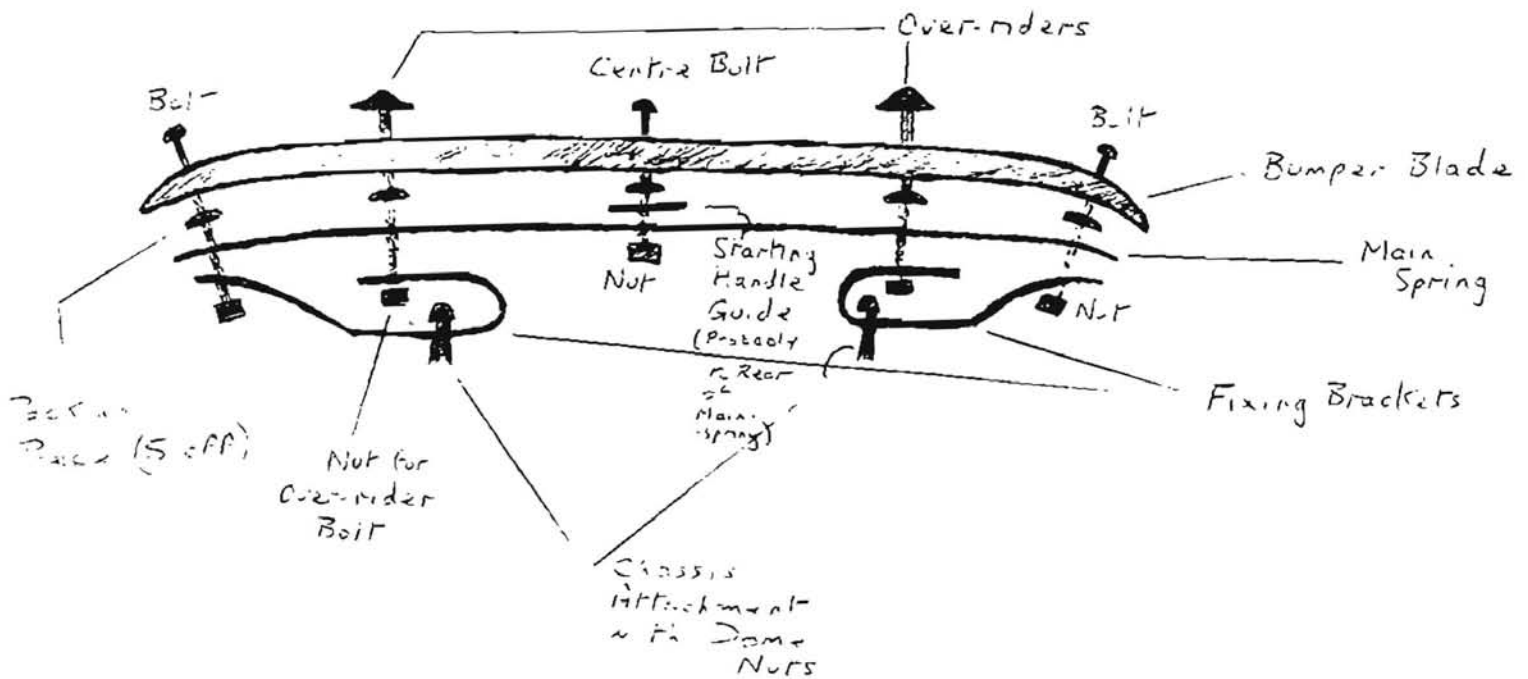 Over-riders
Centre Bolt
Bolt
Bolt
Bumper Blade
Main
Spring
Nut
Starting
Handle
Guide
(Probably
Rear
Main
spring)
Nut
Fixing Brackets
(5 off)
Nut for
Over-rider
Bolt
Chassis
Attachment
with Dome
Nuts